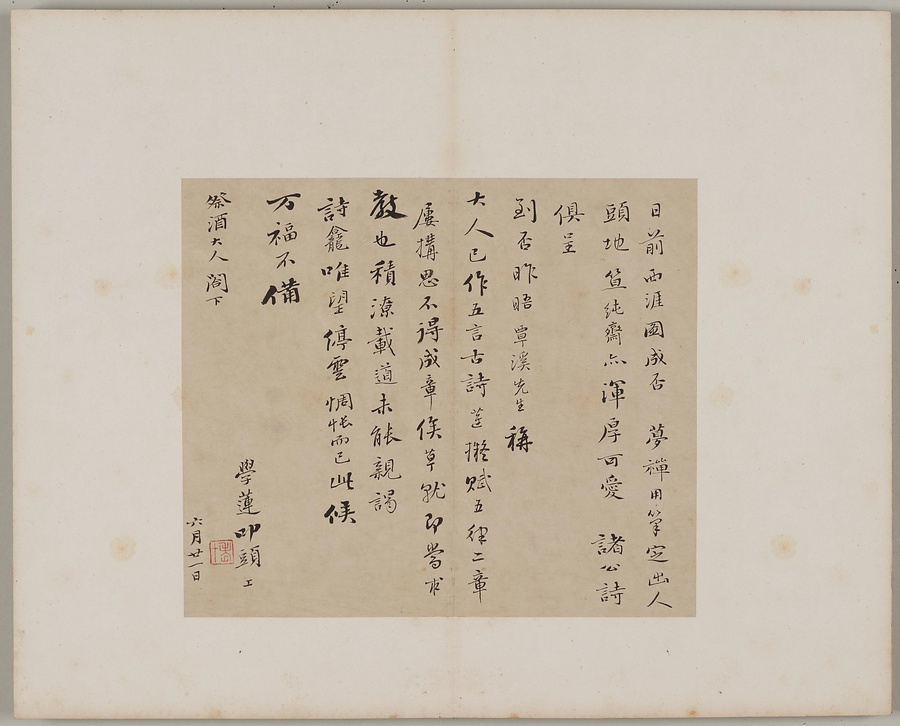 日前西涯圖成否 夢禪用筆定出人
頭地 笪純齋亦渾厚可愛 諸公詩
俱呈
到否昨晤覃溪先生稱
大人已作五言古詩蓮擬賦五律二章
屢搆思不得成章俟草就即當求
教也積潦載道未能親謁
詩龕唯望停雲惆悵而已此候
万福不備
學蓮叩頭上
祭酒大人閣下
六月廿一日